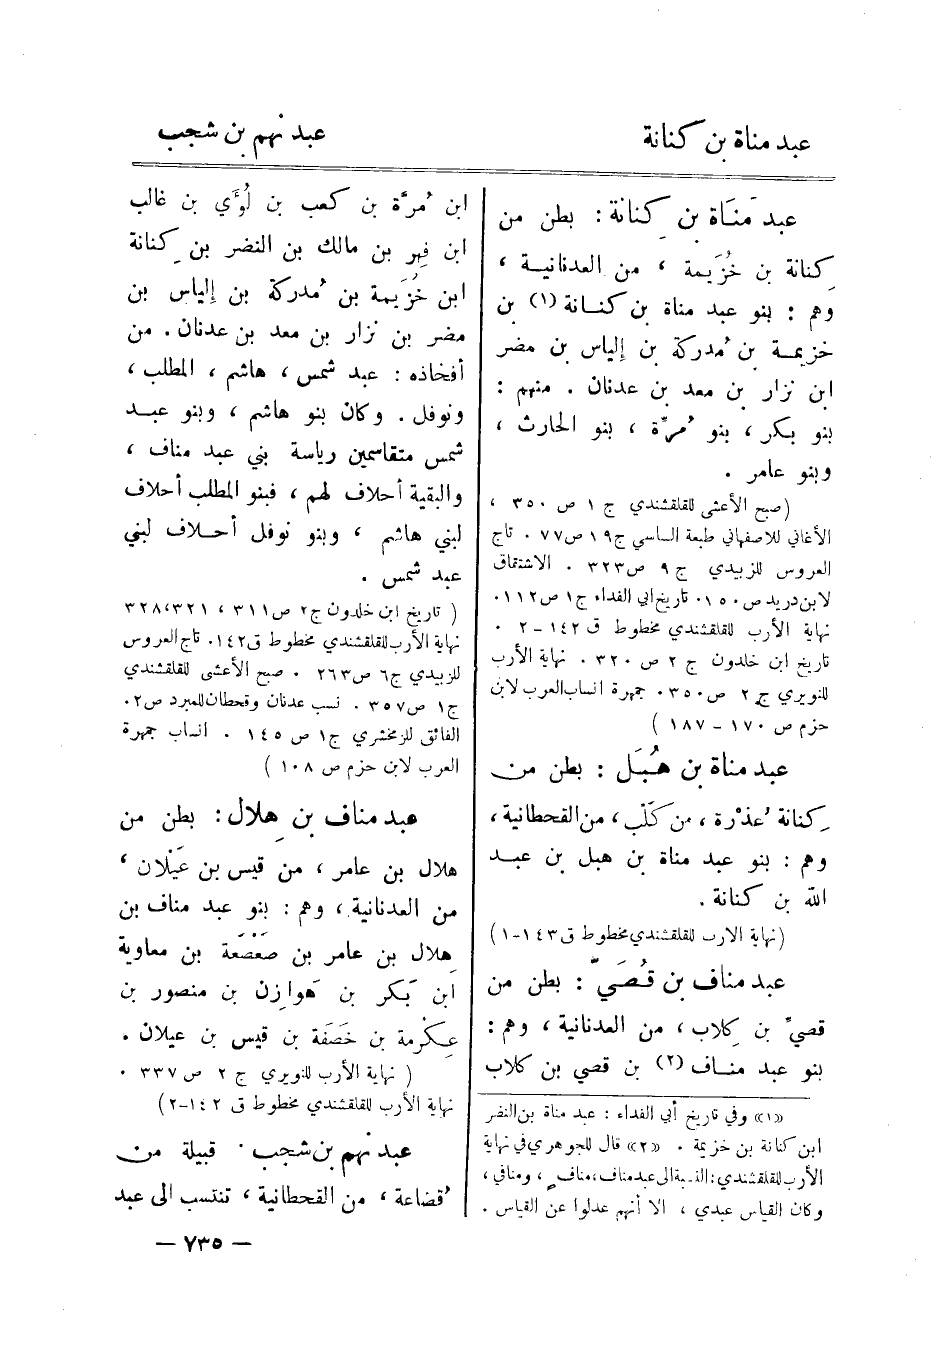 عبد مناة بن كنانة
عبد نهم بن شجب
عبد مَنَاة بن كِنانة : بطن من
كِنانة بن خُزَيمة ، من العدنانية ،
وهم : بنو عبد مناة بن كنانة (١) بن
خزيمة بن مُدركة بن إلياس بن مضر
ابن نزار بن معد بن عدنان . منهم :
بنو بكر ، بنو مُرّة ، بنو الحارث ،
وبنو عامر .
(صبح الأعشى للقلقشندي ج ١ ص ٣٥٠ ،
الأغاني للاصفهاني طبعة الساسي ج١٩ ص٧٧ . تاج
العروس للزبيدي ج ٩ ص٣٢٣ . الاشتقاق
لابن دريد ص١٥٠. تاريخ ابي الفداء ج١ ص١١٢.
نهاية الأرب للقلقشندي مخطوط ق ١٤٢ – ٢ .
تاريخ ابن خلدون ج ٢ ص ٣٢٠ . نهاية الأرب
للنويري ج ٢ ص٣٥٠. جمهرة انساب العرب لابن
حزم ص ١٧٠ – ١٨٧ )
عبد مناة بن هُبَل : بطن من
كِنانة عُذْرة ، من كَلْب ، من القحطانية ،
وهم : بنو عبد مناة بن هبل بن عبد
الله بن كنانة .
(نهاية الارب للقلقشندي مخطوط ق ١٤٣–١)
عبد مناف بن قُصَيّ : بطن من
قصيّ بن كِلاب ، من العدنانية ، وهم :
بنو عبد مناف (٢) بن قصي بن كلاب
«١» وفي تاريخ أبي الفداء : عبد مناة بن النضر
ابن كنانة بن خزيمة . «٢» قال الجوهري في نهاية
الأرب للقلقشندي : النسبة الى عبد مناف ، مناف ، ومنافي ،
وكان القياس عبدي ، الا أنهم عدلوا عن القياس .
ابن مُرَّة بن كعب بن لُؤَي بن غالب
ابن فِهر بن مالك بن النضر بن كِنانة
ابن خُزَيمة بن مُدركة بن إلياس بن
مضر بن نزار بن معد بن عدنان . من
أفخاذه : عبد شمس ، هاشم ، المطلب ،
ونوفل . وكان بنو هاشم ، وبنو عبد
شمس متقاسمين رياسة بني عبد مناف ،
والبقية أحلاف لهم ، فبنو المطلب أحلاف
لبني هاشم ، وبنو نوفل أحلاف لبني
عبد شمس .
( تاريخ ابن خلدون ج٢ ص٣١١ ، ٣٢١،٣٢٨
نهاية الأرب للقلقشندي مخطوط ق١٤٢. تاج العروس
للزبيدي ج٦ ص٢٦٣ . صبح الأعشى للقلقشندي
ج١ ص٣٥٧ . نسب عدنان وقحطان للمبرد ص٢.
الفائق للزمخشري ج١ ص ١٤٥ . انساب جمهرة
العرب لابن حزم ص ١٠٨ )
عبد مناف بن هِلال : بطن من
هلال بن عامر ، من قيس بن عَيْلان ،
من العدنانية ، وهم : بنو عبد مناف بن
هِلال بن عامر بن صَعْصَعة بن معاوية
ابن بَكر بن هَوازِن بن منصور بن
عِكْرمة بن خَصَفة بن قيس بن عيلان .
( نهاية الأرب للنويري ج ٢ ص٣٣٧ .
نهاية الأرب للقلقشندي مخطوط ق ١٤٢–٢)
عبد نُهم بن شجب . قبيلة من
قُضاعة ، من القحطانية ، تنتسب الى عبد
— ٧٣٥ —